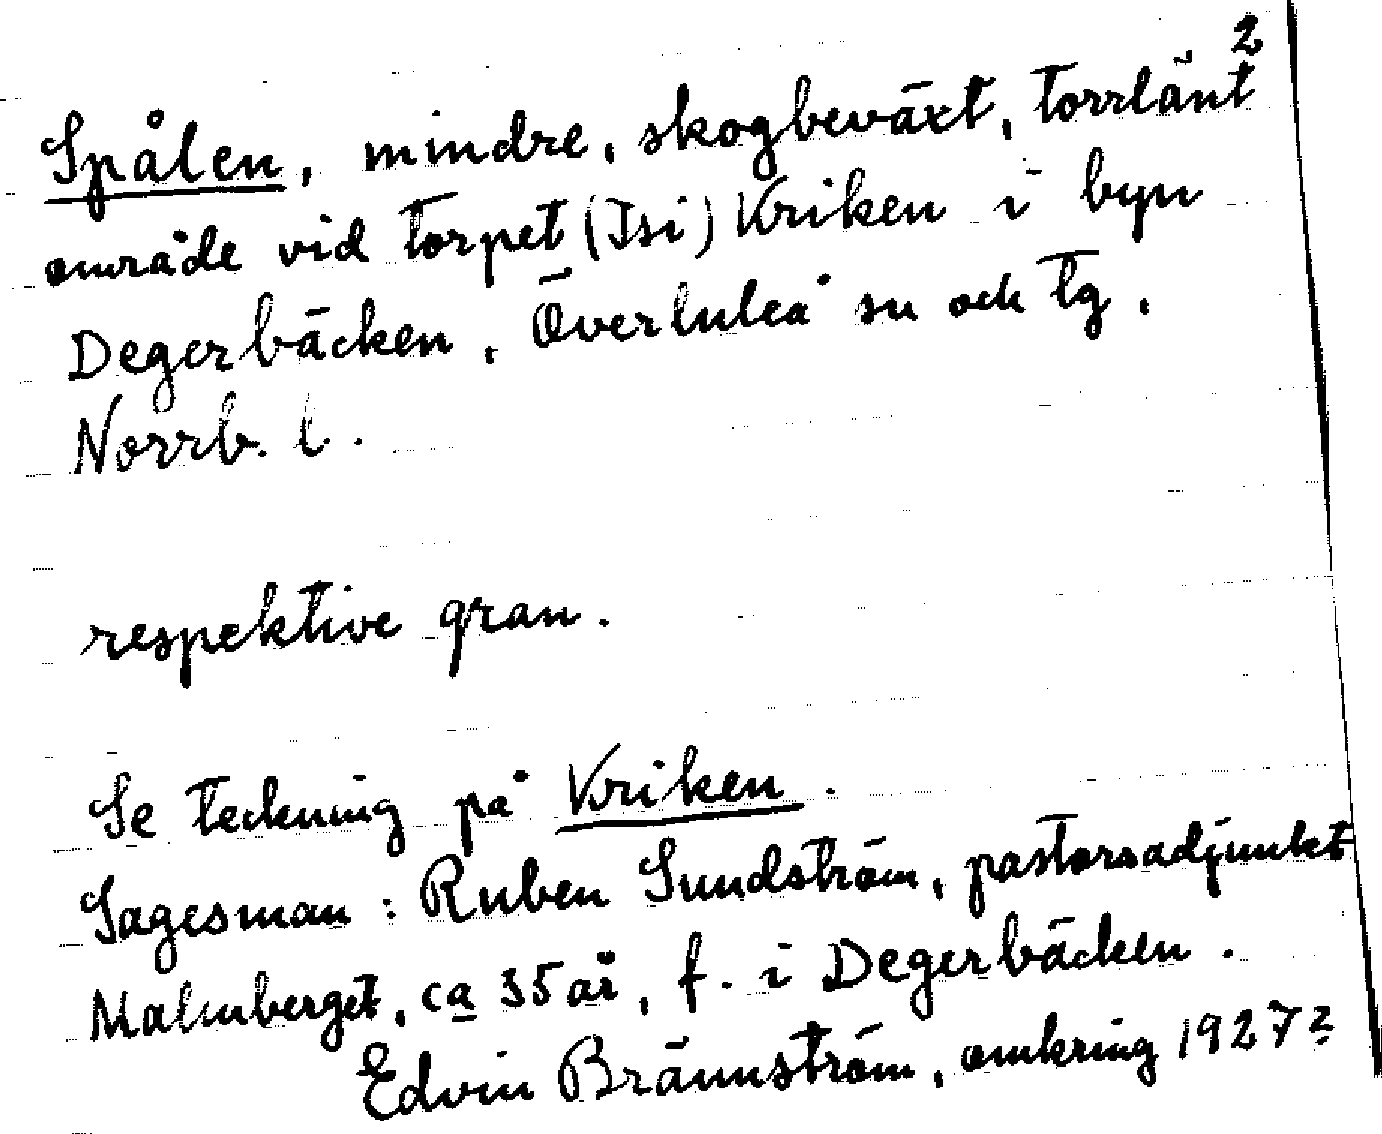 2
Spålen, mindre, skogbeväxt, torrlänt
område vid torpet (Isi) Kriken i byn
Degerbäcken, Överluleå sn och tg,
Norrb. l.
respektive gran.
Se teckning på Kriken.
Sagesman: Ruben Sundström, pastorsadjunkt
Malmberget, ca 35 år, f. i Degerbäcken.
Edvin Brännström, omkring 1927?